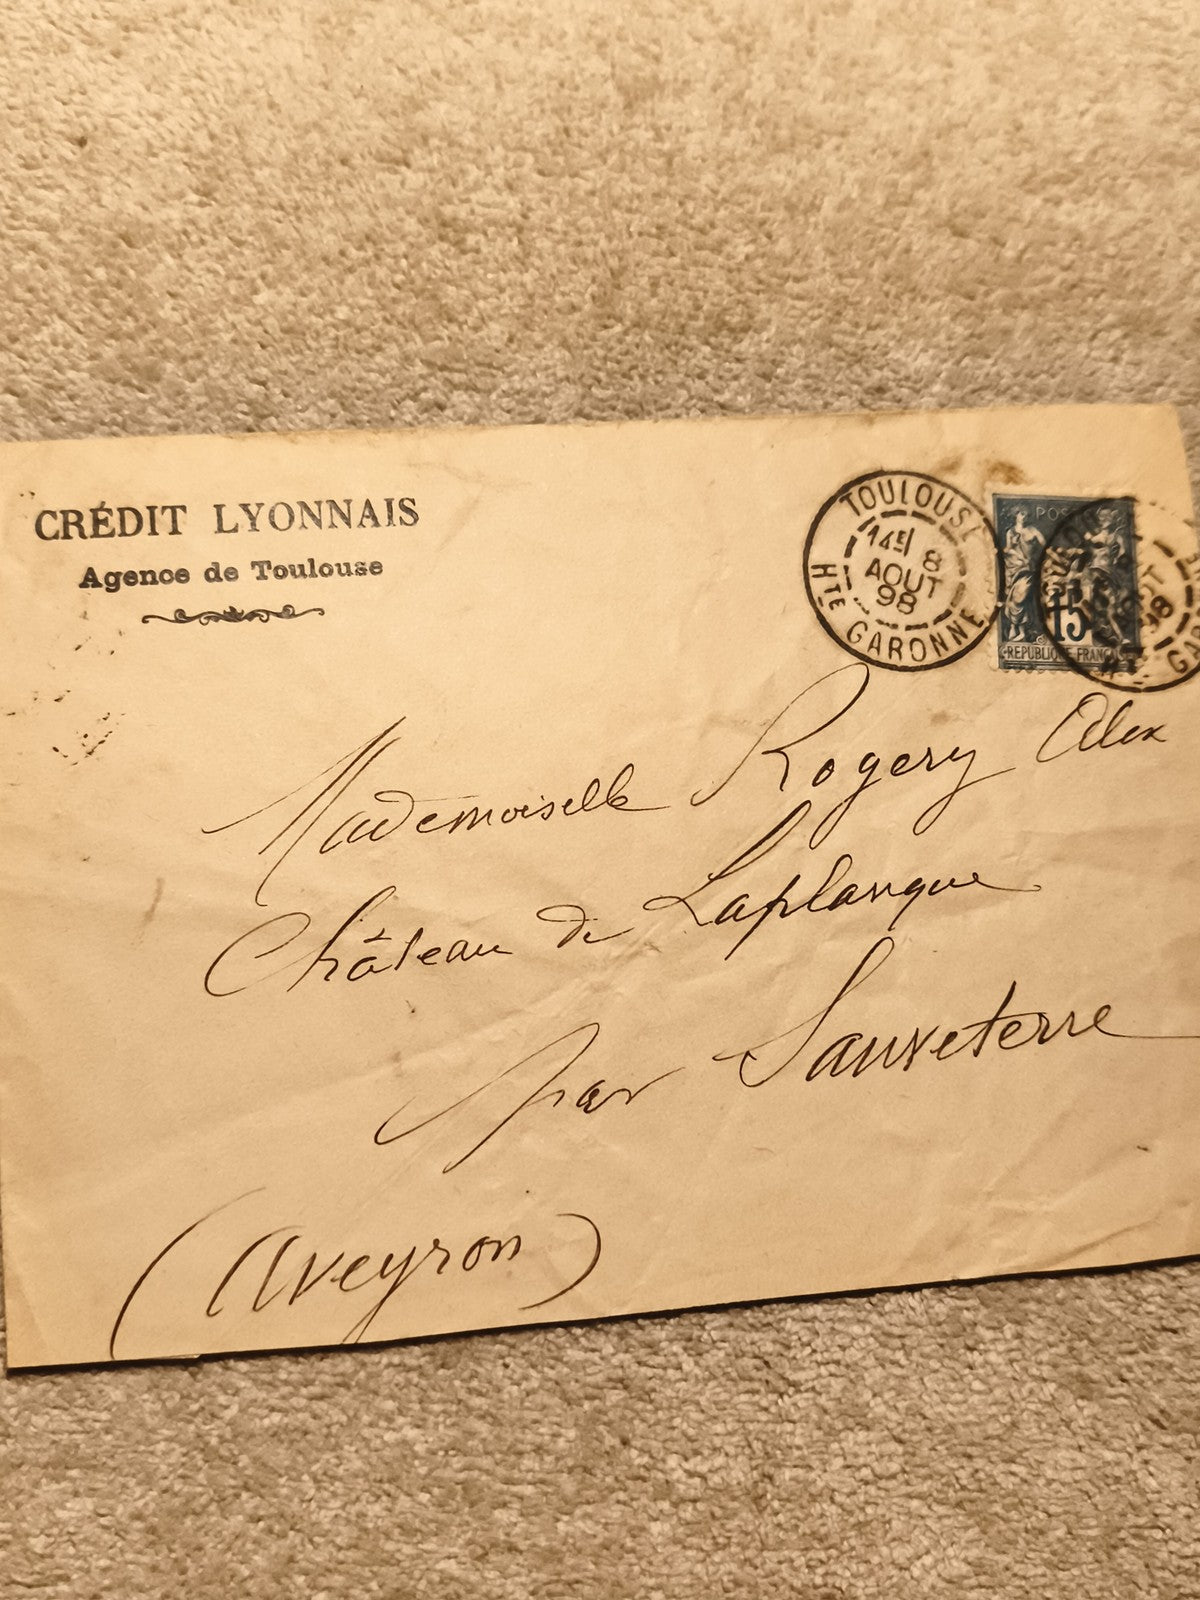 CRÉDIT LYONNAIS
Agence de Toulouse
TOULOUSE
14E 8
AOUT
98
HTE GARONNE
POS
15
REPUBLIQUE FRANÇAISE
Mademoiselle Rogery Alex
Château de Laplanque
par Sauveterre
(Aveyron)